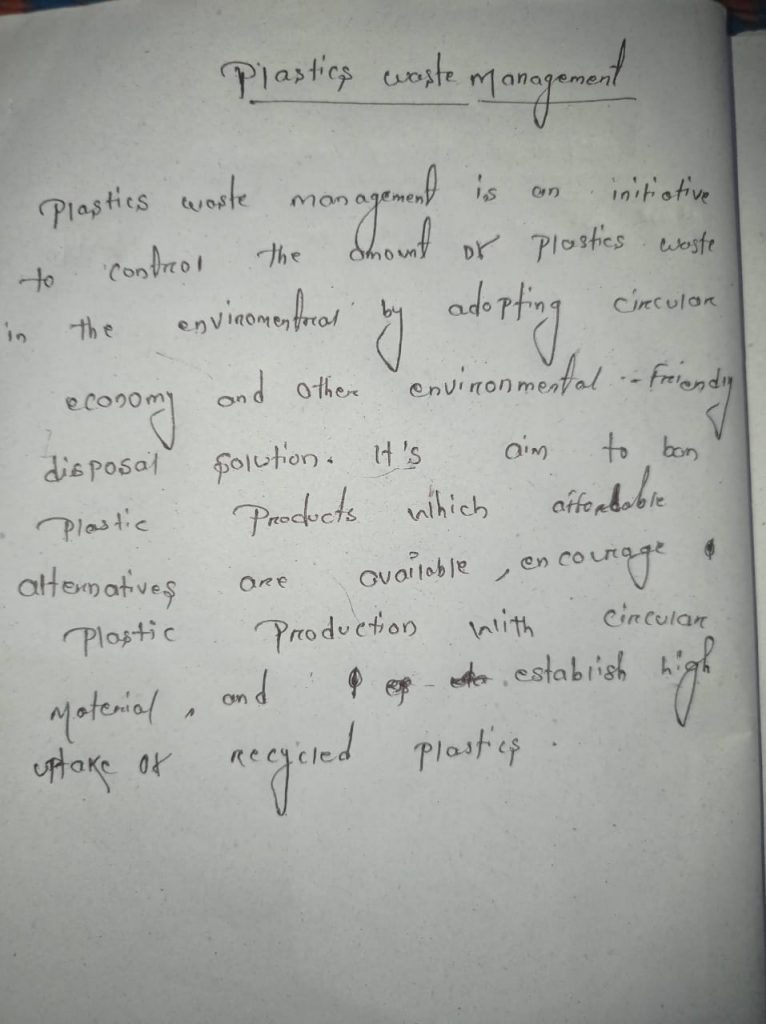 Plastics waste management
Plastics waste management is an initiative
to control the amount of plastics waste
in the enviromentral by adopting circular
economy and other environmental - friendly
disposal solution. It's aim to ban
plastic products which affordable
alternatives are available, encourage
plastic production with circular
material, and establish high
uptake of recycled plastics.